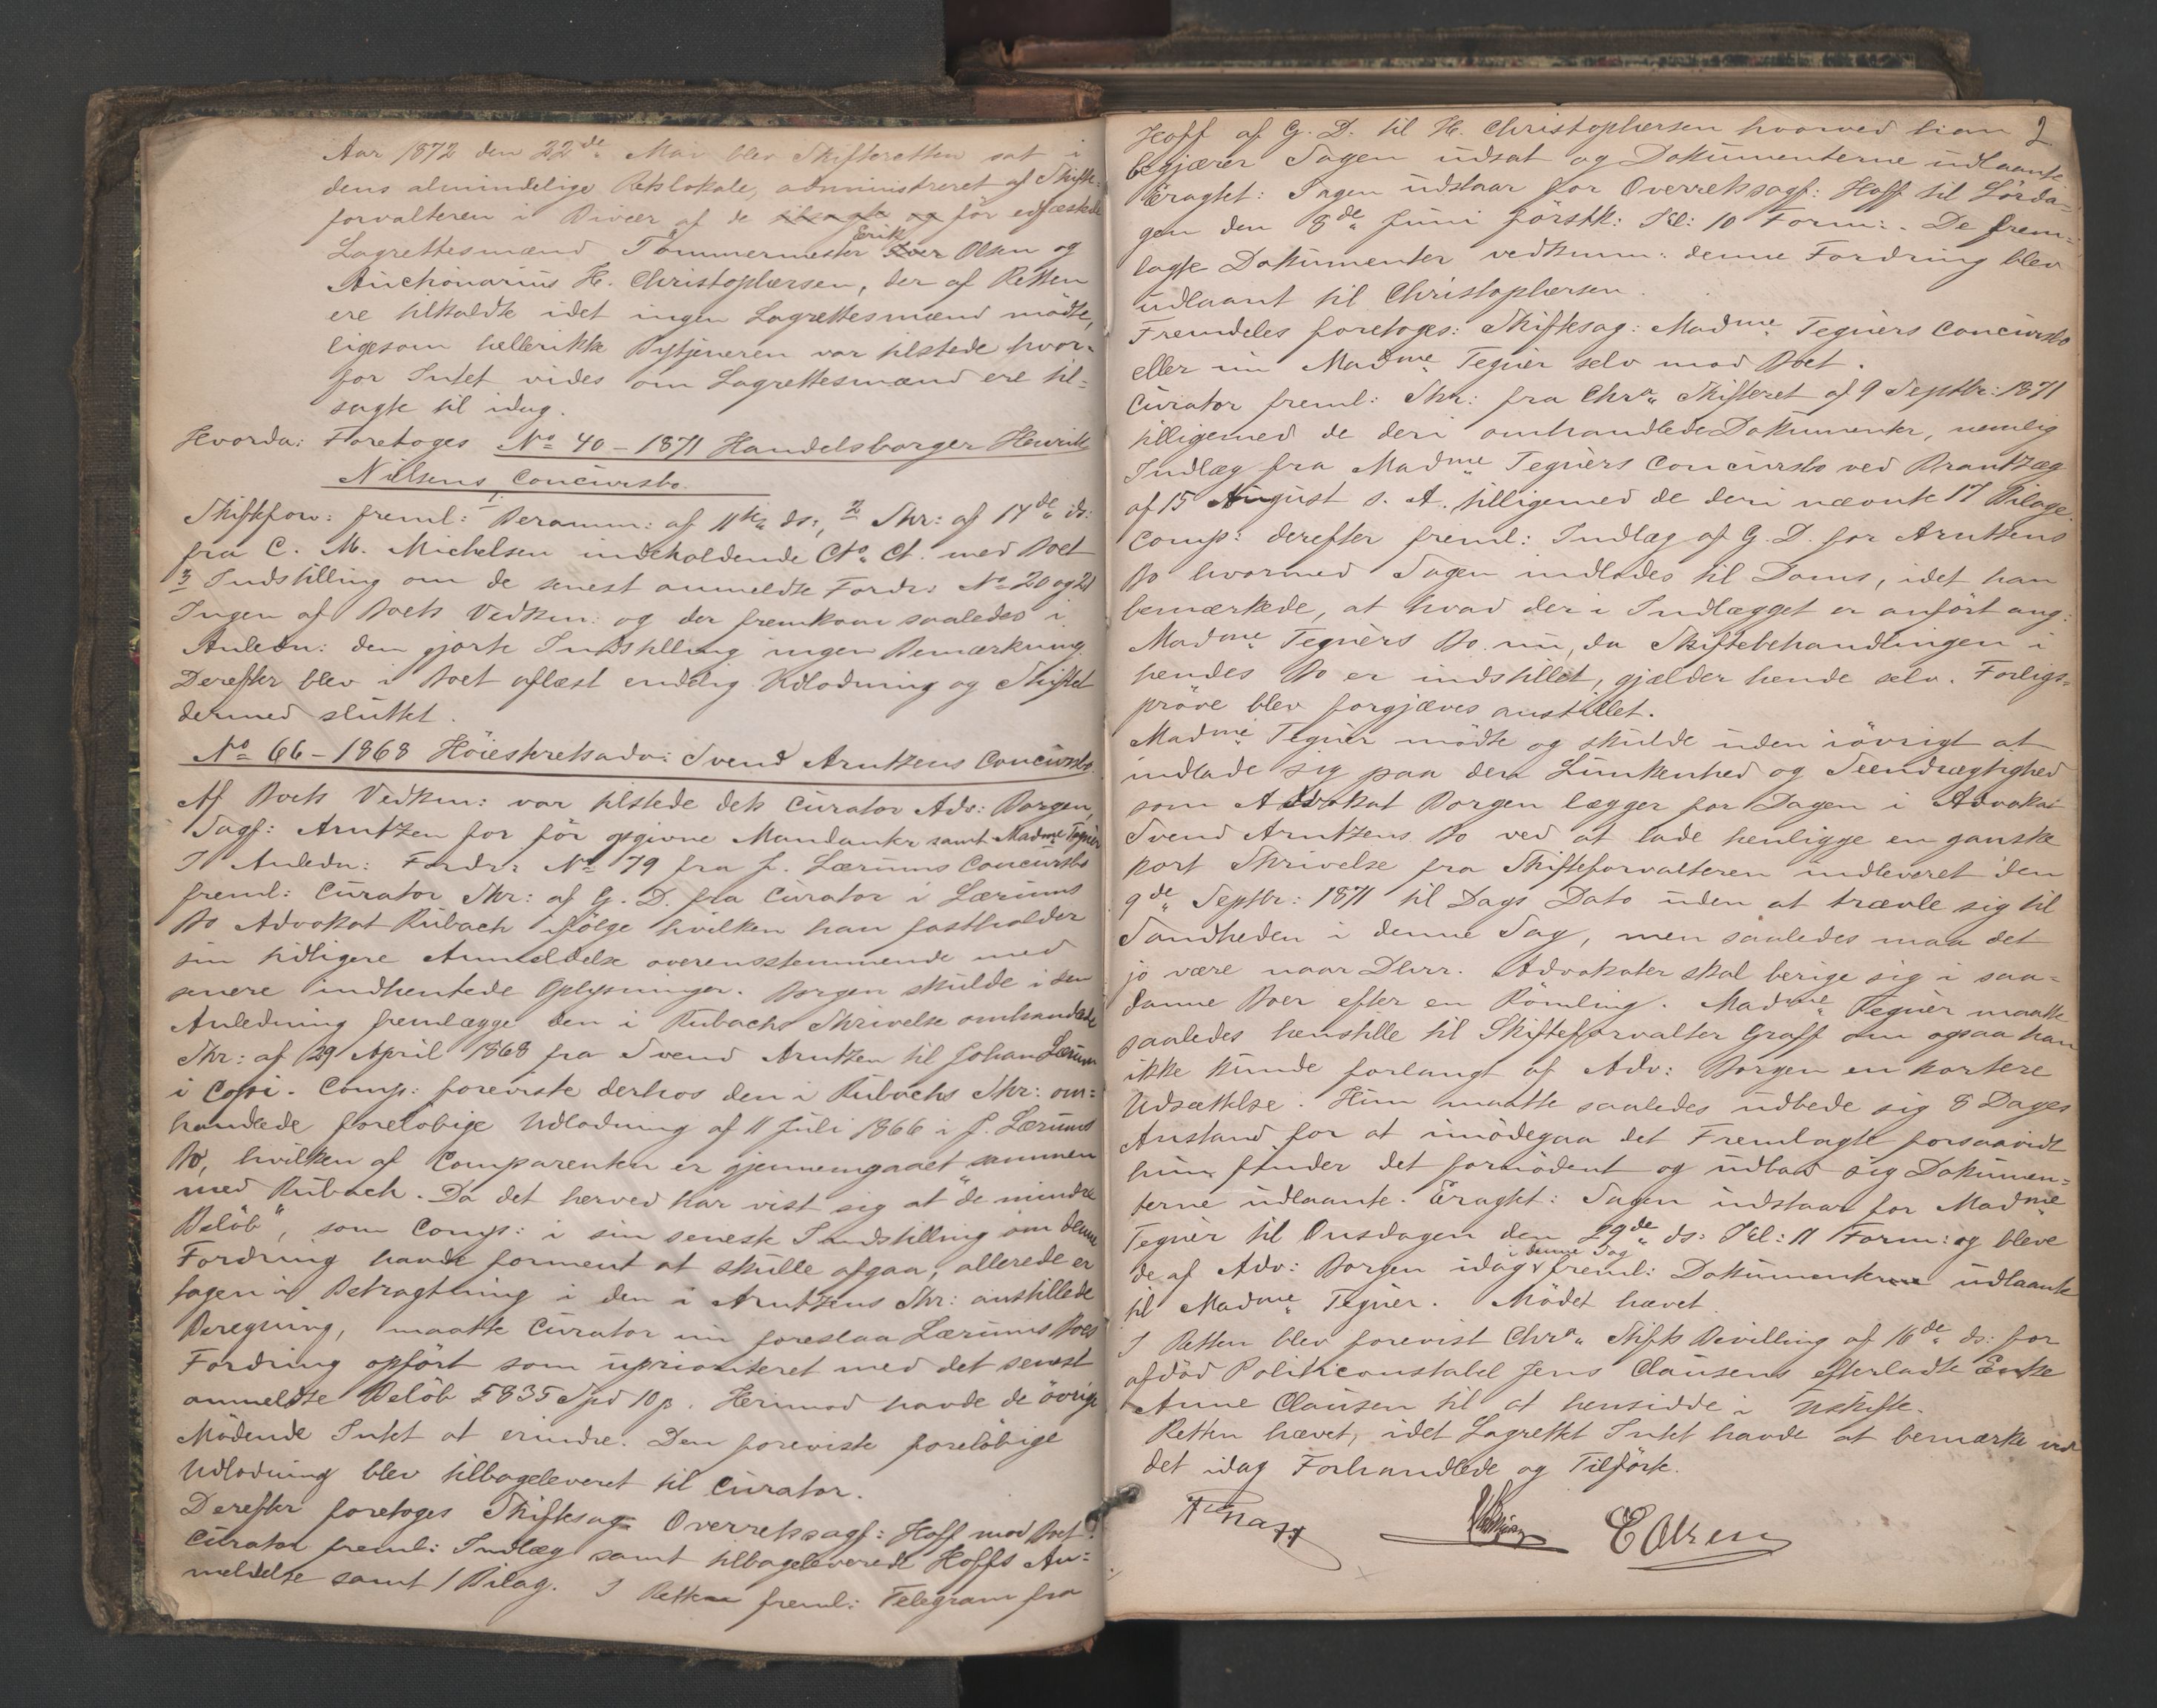 Aar 1872 den 22de Mai blev Skifteretten sat i
dens almindelige Retslokale, administreret af Skifte-
forvalteren i Bivær af de tilsagte og før edfæstede
Lagrettesmænd Tømmermester Iver Erik Olsen og
Auctionarius H. Christophersen, der af Retten
ere tilkaldte idet ingen Lagrettesmænd mødte,
ligesom hellerikke Bytjeneren var tilstede hvor-
for Intet vides om Lagrettesmænd ere til-
sagte til idag.
Hvorda: Foretoges No 40 - 1871 Handelsborger Henrik
Nilsens Concursbo.
Skiftefov: freml: 1. Beramm: af 11te ds:, 2 Skr: af 14de ds:
fra C. M. Michelsen indeholdende Cto Ct. med Boet
3 Indstilling om de senest anmeldte Fordr: No 20 og 21
Ingen af Boets Vedkm: og der fremkom saaledes i
Anledn: den gjorte Indstilling ingen Bemærkning.
Derefter blev i Boet aflæst endelig Udlodning og Skiftet
dermed sluttet.
No 66 - 1868 Høiesteretsadv: Svend Arntzens Concursbo.
Af Boets Vedkm: var tilstede dets Curator Adv: Borgen,
Sagf: Arntzen for før opgivne Mandanter samt Madme Tegnér
I Anledn: Fordr: No 79 fra J. Lærums Concursbo
freml: Curator Skr: af G. D. fra Curator i Lærums
Bo Advokat Rubach ifølge hvilken han fastholder
sin tidligere Anmeldelse overensstemmende med
senere indhentede Oplysninger. Borgen skulde i den
Anledning fremlægge den i Rubachs Skrivelse omhandlede
Skr: af 29 April 1868 fra Svend Arntzen til Johan Lærum
i Copi. Comp: foreviste derhos den i Rubachs Skr: om-
handlede foreløbige Udlodning af 11 Juli 1866 i J. Lærums
Bo, hvilken af Comparenten er gjennemgaaet sammen
med Rubach. Da det herved har vist sig at "de mindre
Beløb", som Comp: i sin seneste Indstilling om denne
Fordring havde forment at skulle afgaa, allerede er
tagen i Betragtning i den i Arntzens Skr: anstillede
Beregning, maatte Curator nu foreslaa Lærums Boes
Fordring opført som uprioriteret med det senest
anmeldte Beløb 5835 Spd 10 ß. Herimod havde de øvrige
Mødende Intet at erindre. Den foreviste foreløbige
Udlodning blev tilbageleveret til Curator.
Derefter foretoges Skiftesag Overretssagf: Hoff mod Boet.
Curator freml: Indlæg samt tilbageleverede Hoffs An-
meldelse samt 1 Bilag. I Retten freml: Telegram fra
2
Hoff af G. D. til H. Christophersen hvorved han
begjærer Sagen udsat og Dokumenterne udlaante
Eragtet: Sagen udstaar for Overretssagf: Hoff til Lørda-
gen den 8de Juni førstk: Kl: 10 Form:. De frem-
lagte Dokumenter vedkomm: denne Fordring blev
udlaant til Christophersen.
Fremdeles foretoges: Skiftesag: Madme Tegnérs Concursbo
eller nu Madme Tegnér selv mod Boet.
Curator freml: Skr: fra Chra Skifteret af 9 Septbr: 1871
tilligemed de deri omhandlede Dokumenter, nemlig
Indlæg fra Madme Tegnérs Concursbo ved Brantzæg
af 15 August s. A. tilligemed de deri nævnte 17 Bilage.
Comp: derefter freml: Indlæg af G. D. for Arntzens
Bo hvormed Sagen indlodes til Doms, idet han
bemærkede, at hvad der i Indlægget er anført ang:
Madme Tegnérs Bo nu, da Skiftebehandlingen i
hendes Bo er indstillet, gjælder hende selv. Forligs-
prøve blev forgjæves anstillet.
Madme Tegnér mødte og skulde uden iøvrigt at
indlade sig paa den Lunkenhed og Seendrægtighed
som Advokat Borgen lægger for Dagen i Advokat
Svend Arntzens Bo ved at lade henligge en ganske
kort Skrivelse fra Skifteforvalteren indleveret den
9de Septbr: 1871 til Dags Dato uden at trævle sig til
Sandheden i denne Sag, men saaledes maa det
jo være naar Dhrr. Advokater skal berige sig i saa-
danne Boer efter en Rømling. Madme Tegnér maatte
saaledes henstille til Skifteforvalter Graff om ogsaa han
ikke kunde forlangt af Adv: Borgen en kortere
Udsættelse. Hun maatte saaledes udbede sig 8 Dages
Anstand for at imødegaa det Fremlagte forsaavidt
hun finder det fornødent og udbad sig Dokumen-
terne udlaante. Eragtet: Sagen udstaar for Madme
Tegnér til Onsdagen den 29de ds: Kl: 11 Form: og bleve
de af Adv: Borgen idag i denne Sag freml: Dokumenter udlaante
til Madme Tegnér. Mødet hævet.
I Retten blev forevist Chra Stifts Bevilling af 16de ds: for
afdød Politiconstabel Jens Clausens efterladte Enke
Anne Clausen til at hensidde i uskifte.
Retten hævet, idet Lagrettet Intet havde at bemærke ved
det idag Forhandlede og Tilførte.
Graff
E Olsen